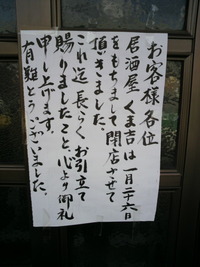 お客様各位
居酒屋くま吉は一月二十六日
をもちまして閉店させて
頂きました。
これ迄長らくお引立て
賜りましたこと心より御礼
申し上げます。
有難とうございました。